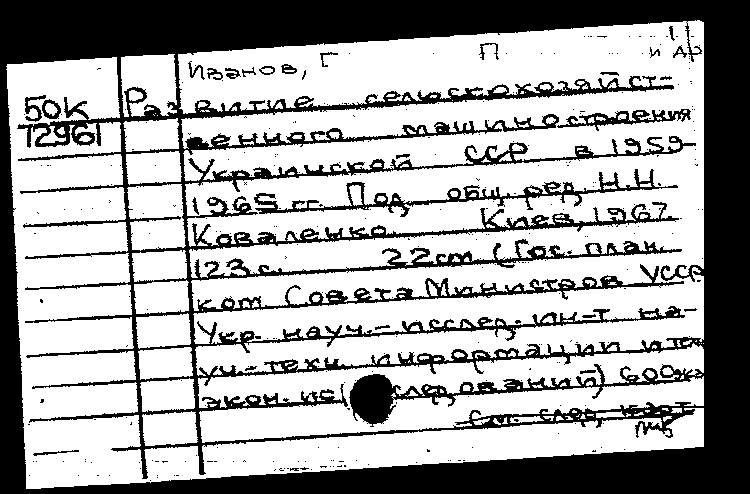 Иванов, Г П и др
50К Развитие сельскохозяйст-
72961 венного машиностроения
Украинской ССР в 1959-
1965 гг. Под общ. ред. Н.Н.
Коваленко. Киев, 1967
123 с. 22 cm (Гос. план.
ком. Совета Министров УССР
Укр. науч.-исслед. ин-т на-
уч.-техн. информации и тех
экон. ис( следований) 600экз
См. след. карт